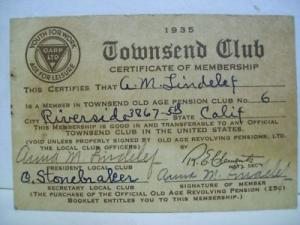 1935
YOUTH FOR WORK
OARP
LTD
AGE FOR LEISURE
Townsend Club
CERTIFICATE OF MEMBERSHIP
THIS CERTIFIES THAT A. M. Lindelef
IS A MEMBER IN TOWNSEND OLD AGE PENSION CLUB No. 6
CITY Riverside 3867-5th STATE Calif
THIS MEMBERSHIP IS GOOD IN AND TRANSFERABLE TO ANY OFFICIAL
TOWNSEND CLUB IN THE UNITED STATES.
(VOID UNLESS PROPERLY SIGNED BY OLD AGE REVOLVING PENSIONS, LTD.
AND THE LOCAL CLUB OFFICERS) BY
Anna M. Lindelef R. E. Clements
PRESIDENT LOCAL CLUB SECY
O. Stonebraker Anna M. Lindelef
SECRETARY LOCAL CLUB SIGNATURE OF MEMBER
(THE PURCHASE OF THE OFFICIAL OLD AGE REVOLVING PENSIONS (25c)
BOOKLET ENTITLES YOU TO THIS MEMBERSHIP.)